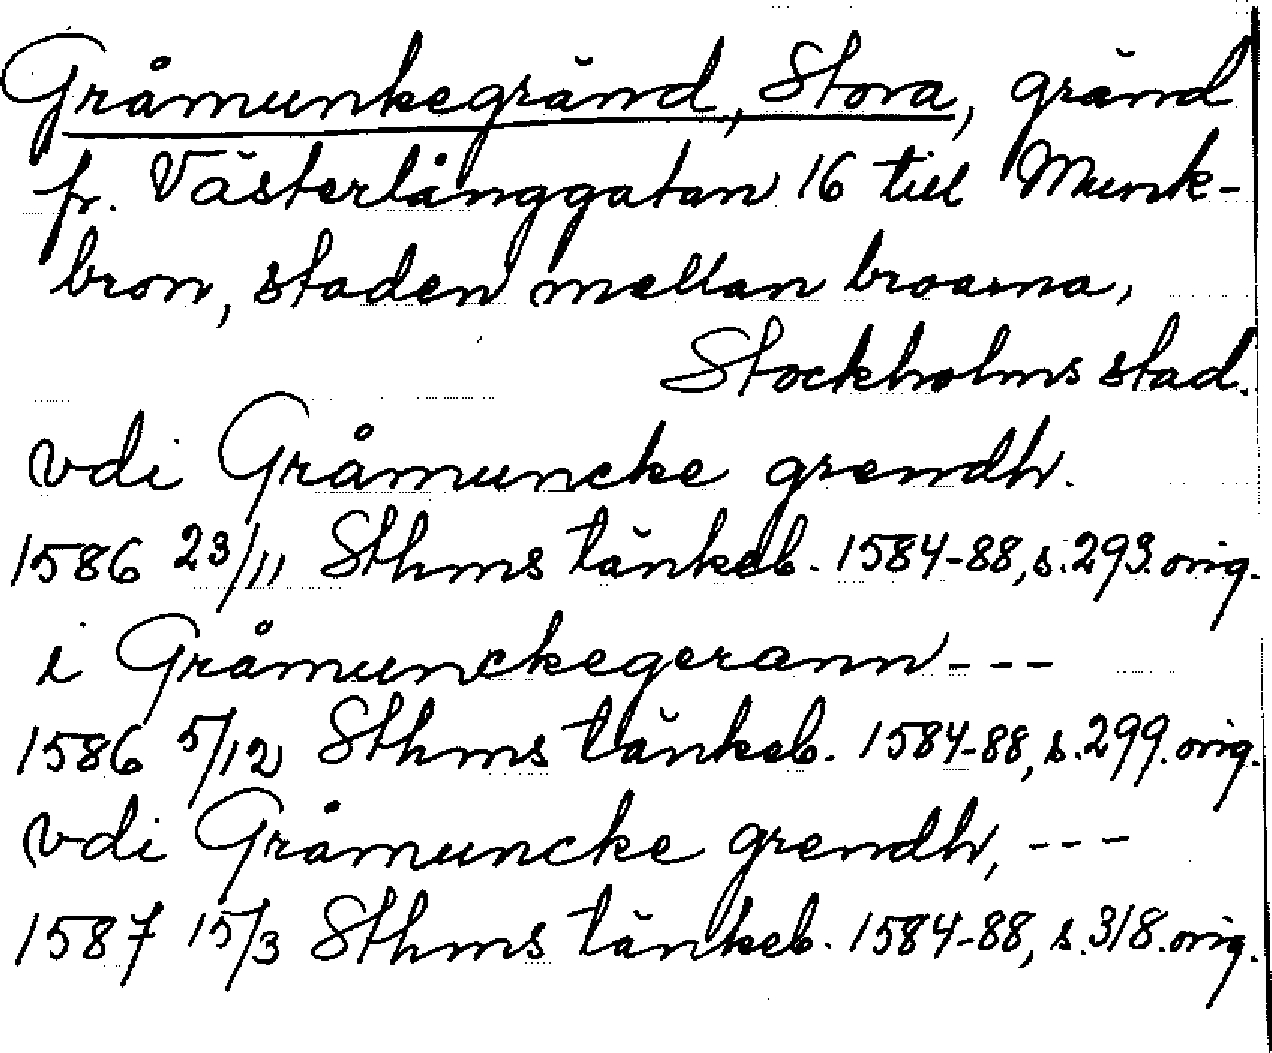 Gråmunkegränd, Stora, gränd
fr. Västerlånggatan 16 till Munk-
bron, staden mellan broarna,
Stockholms stad.
vdi Gråmuncke grendh.
1586 23/11 Sthms tänkeb. 1584-88, s. 293. orig.
i Gråmunckegerann ---
1586 5/12 Sthms tänkeb. 1584-88, s. 299. orig.
vdi Gråmuncke grendh, ---
1587 15/3 Sthms tänkeb. 1584-88, s. 318. orig.